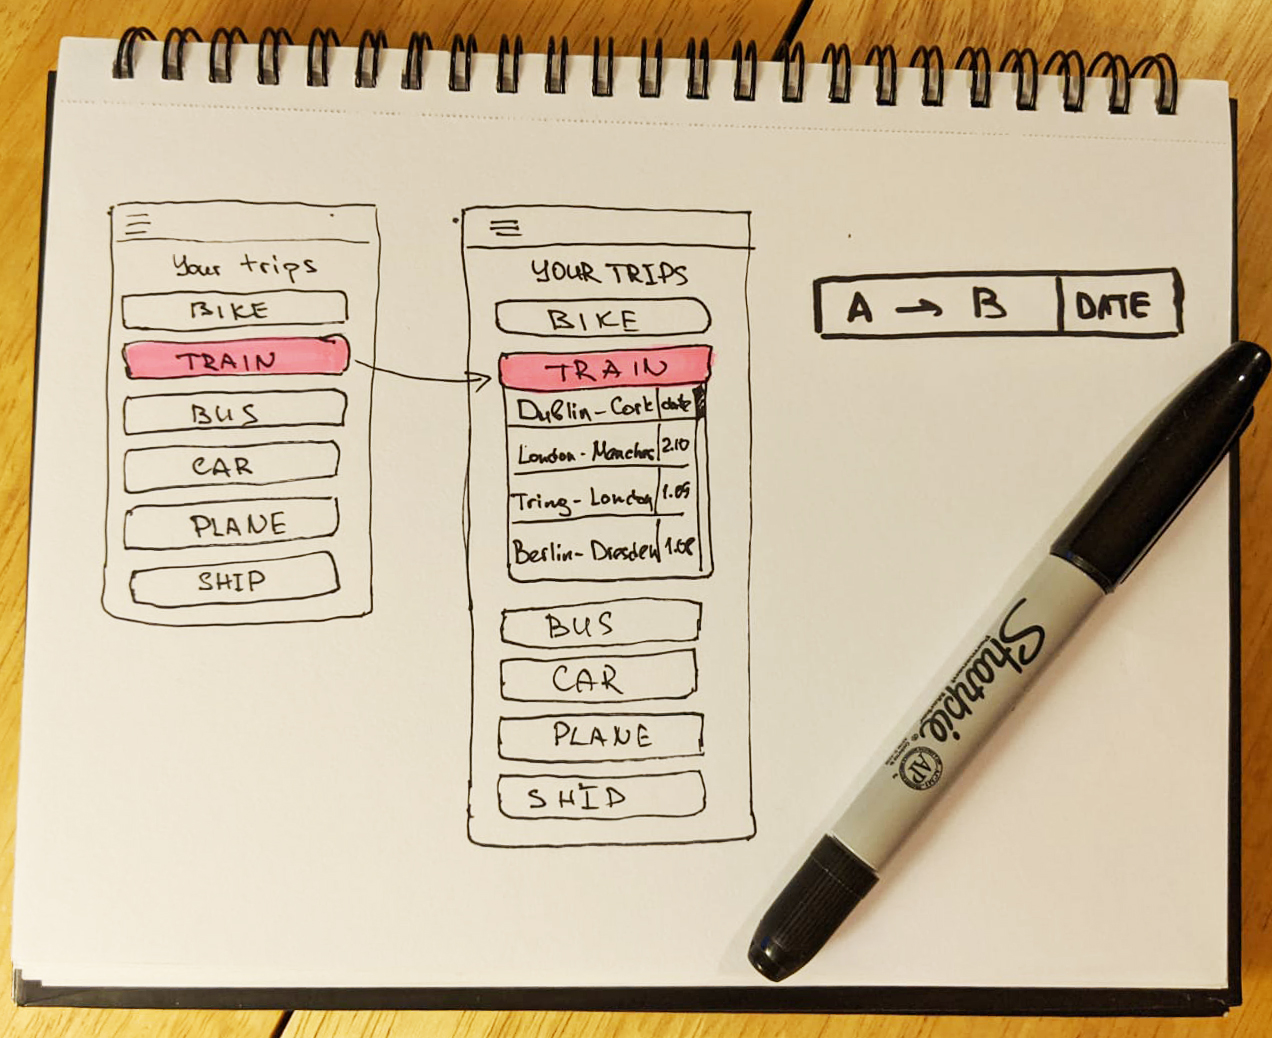 Your trips
BIKE
TRAIN
BUS
CAR
PLANE
SHIP
YOUR TRIPS
BIKE
TRAIN
Dublin - Cork date
London - Manches 2.10
Tring - London 1.09
Berlin - Dresden 1.08
BUS
CAR
PLANE
SHIP
A → B DATE
Sharpie
Permanent Marker
AP